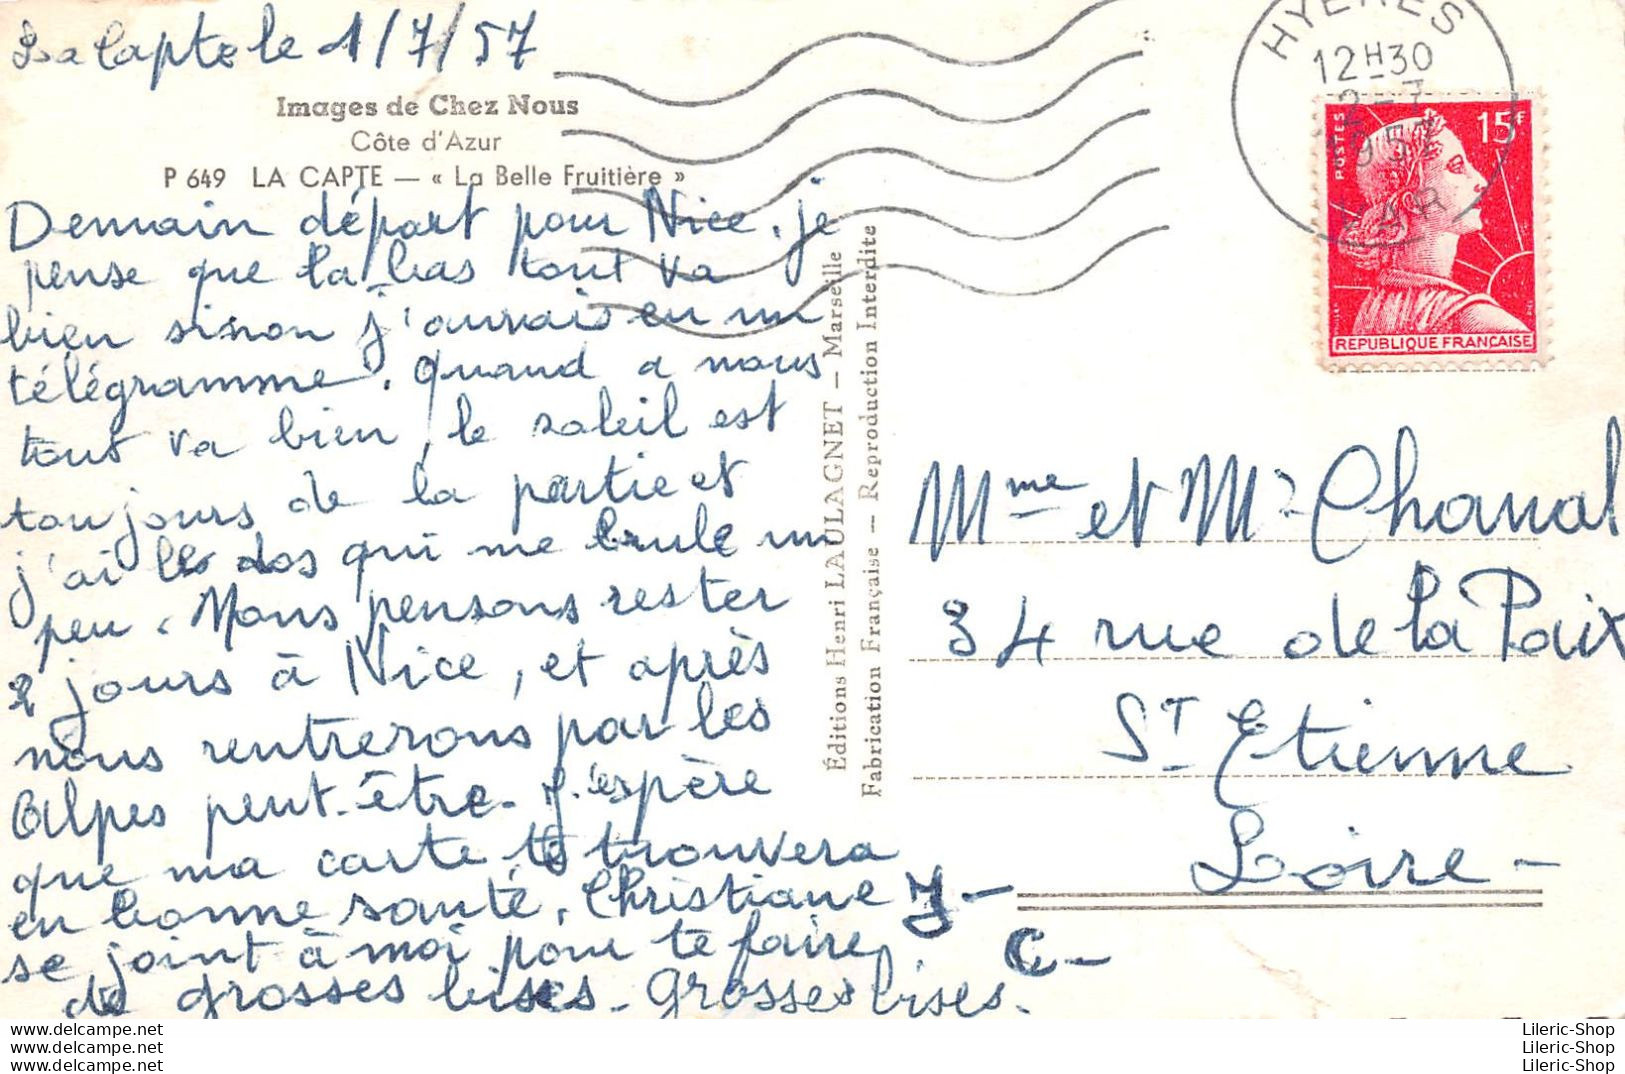 La Capte le 1/7/57
Images de Chez Nous
Côte d'Azur
P 649 LA CAPTE — « La Belle Fruitière »
Demain départ pour Nice. je
pense que la bas tout va
bien sinon j'aurais eu un
télégramme. Quand a nous
tout va bien, le soleil est
toujours de la partie et
j'ai le dos qui me brule un
peu. Nous pensons rester
2 jours à Nice, et après
nous rentrerons par les
Alpes peut-être. J'espère
que ma carte te trouvera
en bonne santé. Christiane
se joint à moi pour te faire
de grosses bises. Grosses bises.
J -
C -
Éditions Henri LAULAGNET — Marseille
Fabrication Française — Reproduction Interdite
HYERES
12H30
2-7
1957
VAR
POSTES
15F
REPUBLIQUE FRANÇAISE
Mme et Mr Chanal
34 rue de la Paix
St Etienne
Loire -
www.delcampe.net
www.delcampe.net
www.delcampe.net
Lileric-Shop
Lileric-Shop
Lileric-Shop